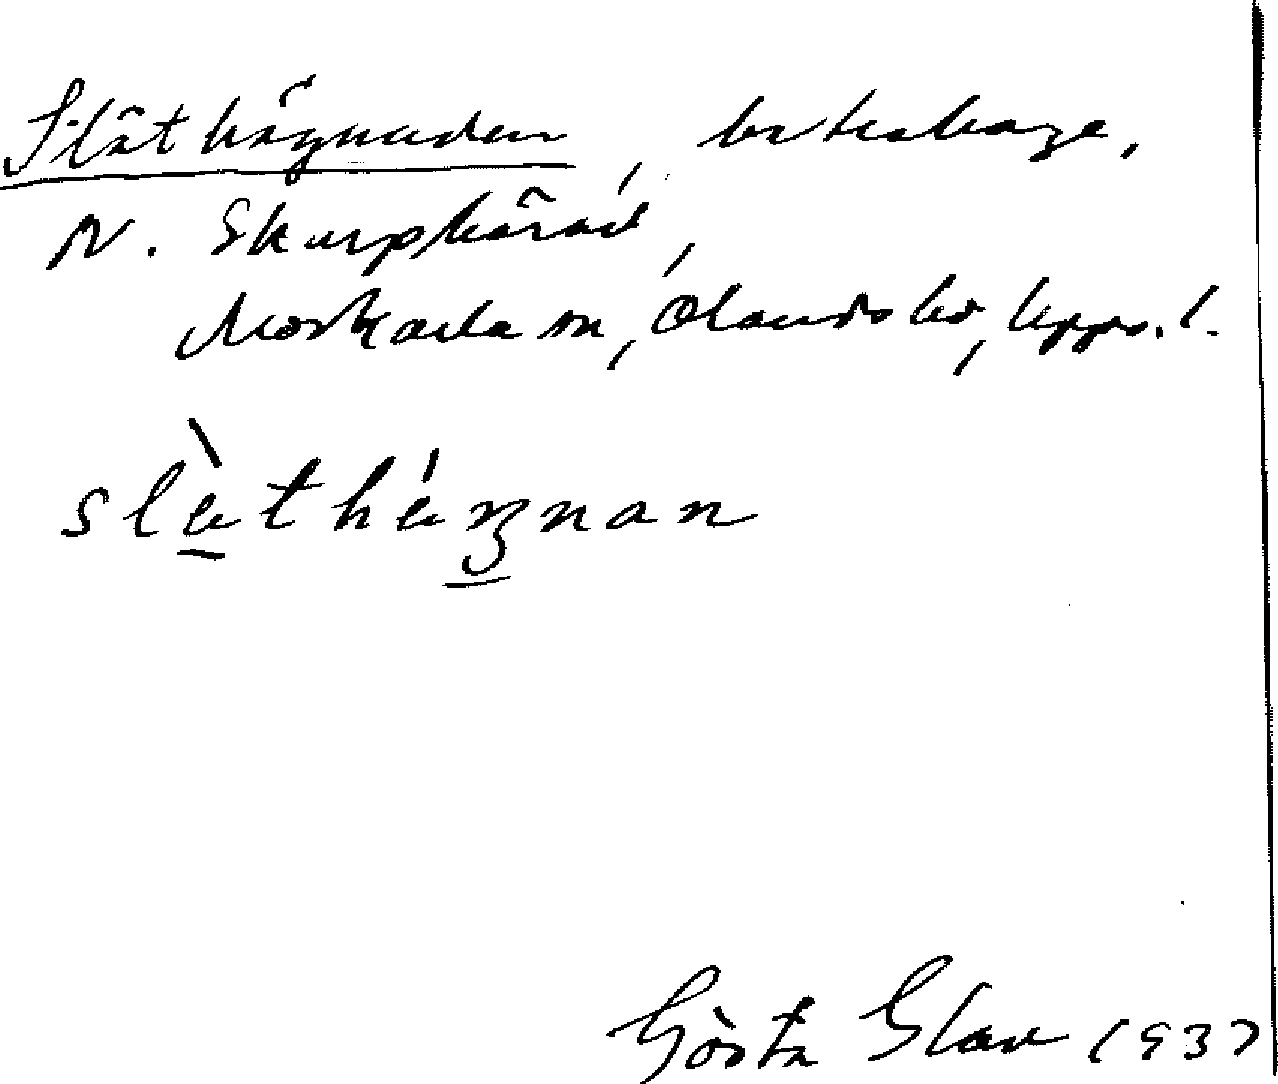 Slåthägnaden, beteshage,
N. Skarpkärad,
Morkarla sn, Olands hd, Upps. l.
slèthéŋnan
Gösta Glav 1937